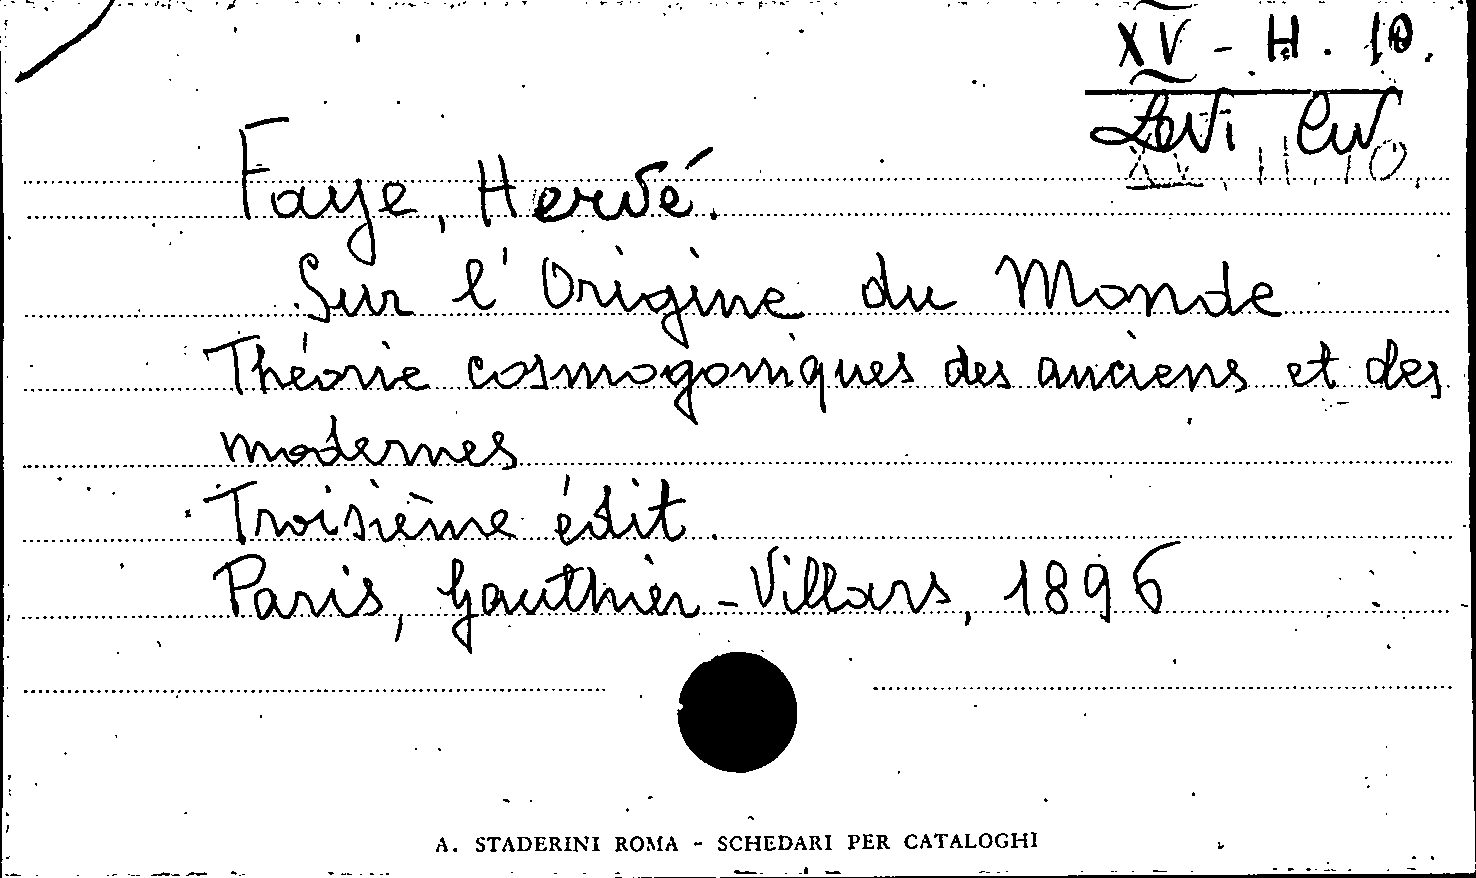 XV - H. 10.
Levi Civ
XV. H. 10.
Faye, Hervé.
Sur l'Origine du Monde
Théorie cosmogoniques des anciens et des
modernes
Troisième édit.
Paris, Gauthier-Villars, 1896
A. STADERINI ROMA - SCHEDARI PER CATALOGHI